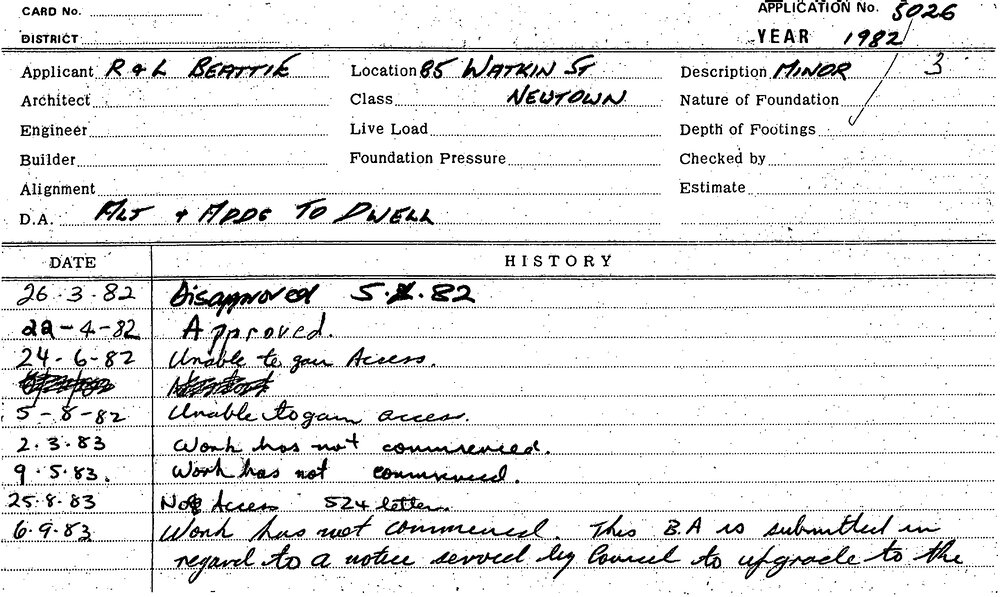 CARD No.
APPLICATION No. 5026
DISTRICT
YEAR 1982
Applicant R & L BEATTIE Location 85 WATKIN ST Description MINOR 3
Architect Class NEWTOWN Nature of Foundation
Engineer Live Load Depth of Footings
Builder Foundation Pressure Checked by
Alignment Estimate
D.A. ALT + ADDS TO DWELL
DATE HISTORY
26.3.82 Disapproved 5. .82
22-4-82 Approved.
24-6-82 Unable to gain Access.
5-8-82 Unable to gain access.
2.3.83 Work has not commenced.
9.5.83. Work has not commenced.
25.8.83 No Access 524 letter.
6.9.83 Work has not commenced. This B.A is submitted in
regard to a notice served by Council to upgrade to the